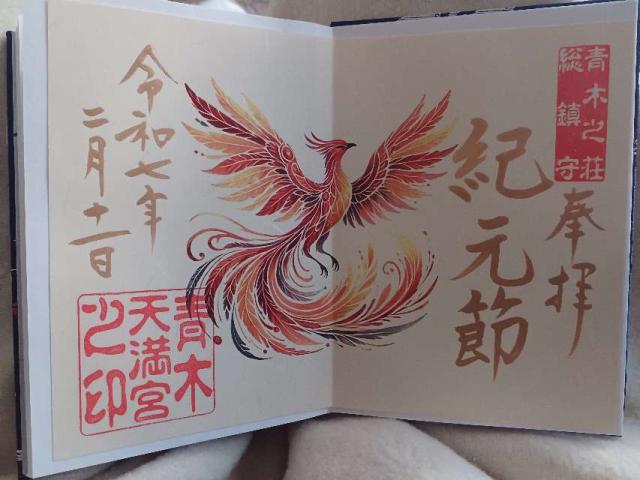 青木之荘
総鎮守
奉拝
紀元節
令和七年
二月十一日
青木
天満宮
之印